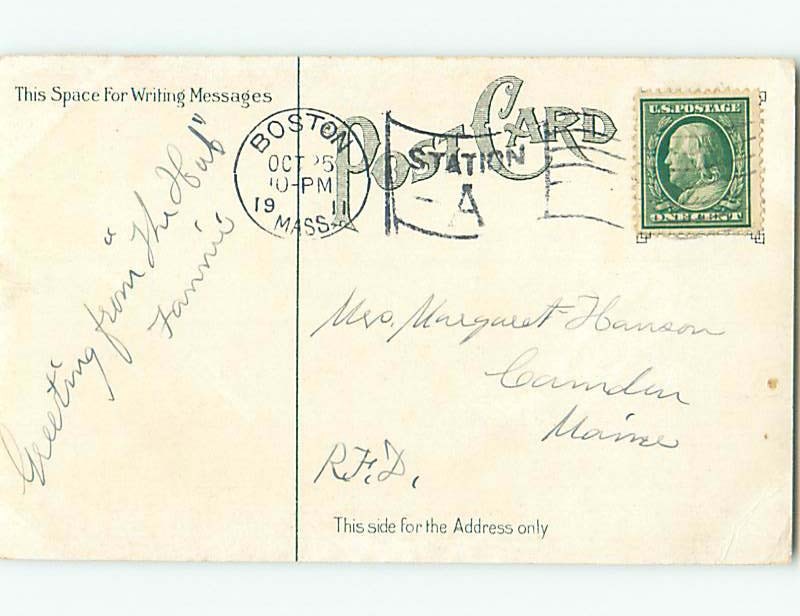 This Space For Writing Messages
Greeting from
"The Hub"
Fannie
POST CARD
BOSTON
OCT 25
10-PM
19 11
MASS.
STATION
A
U.S. POSTAGE
ONE CENT
Mrs. Margaret Hanson
Camden
Maine
R.F.D.
This side for the Address only